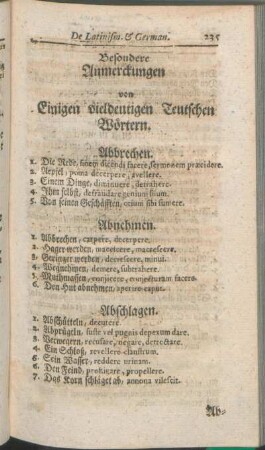 De Latinismo & German. 235
Besondere
Anmerckungen
von
Einigen vieldeutigen Teutschen
Wörtern.
Abbrechen.
1. Die Rede, finem dicendi facere, sermonem præcidere.
2. Aepfel, poma decerpere, avellere.
3. Einem Dinge, diminuere, detrahere.
4. Ihm selbst, defraudare genium suum.
5. Von seinen Geschäfften, otium sibi sumere.
Abnehmen.
1. Abbrechen, carpere, decerpere.
2. Hager werden, macescere,
3. Geringer werden, decrescere, minui.
4. Wegnehmen, demere, subtrahere.
5. Muthmassen, conjicere, conjecturam facere.
6. Den Hut abnehmen, aperire caput.
Abschlagen.
1. Abschütteln, decutere.
2. Abprügeln, fuste vel pugnis depexum dare.
3. Verwegern, recusare, negare, detrectare.
4. Ein Schloß, revellere claustrum.
5. Sein Wasser, reddere urinam.
6. Den Feind, profligare, propellere.
7. Das Korn schläget ab, annona vilescit.
Ab-